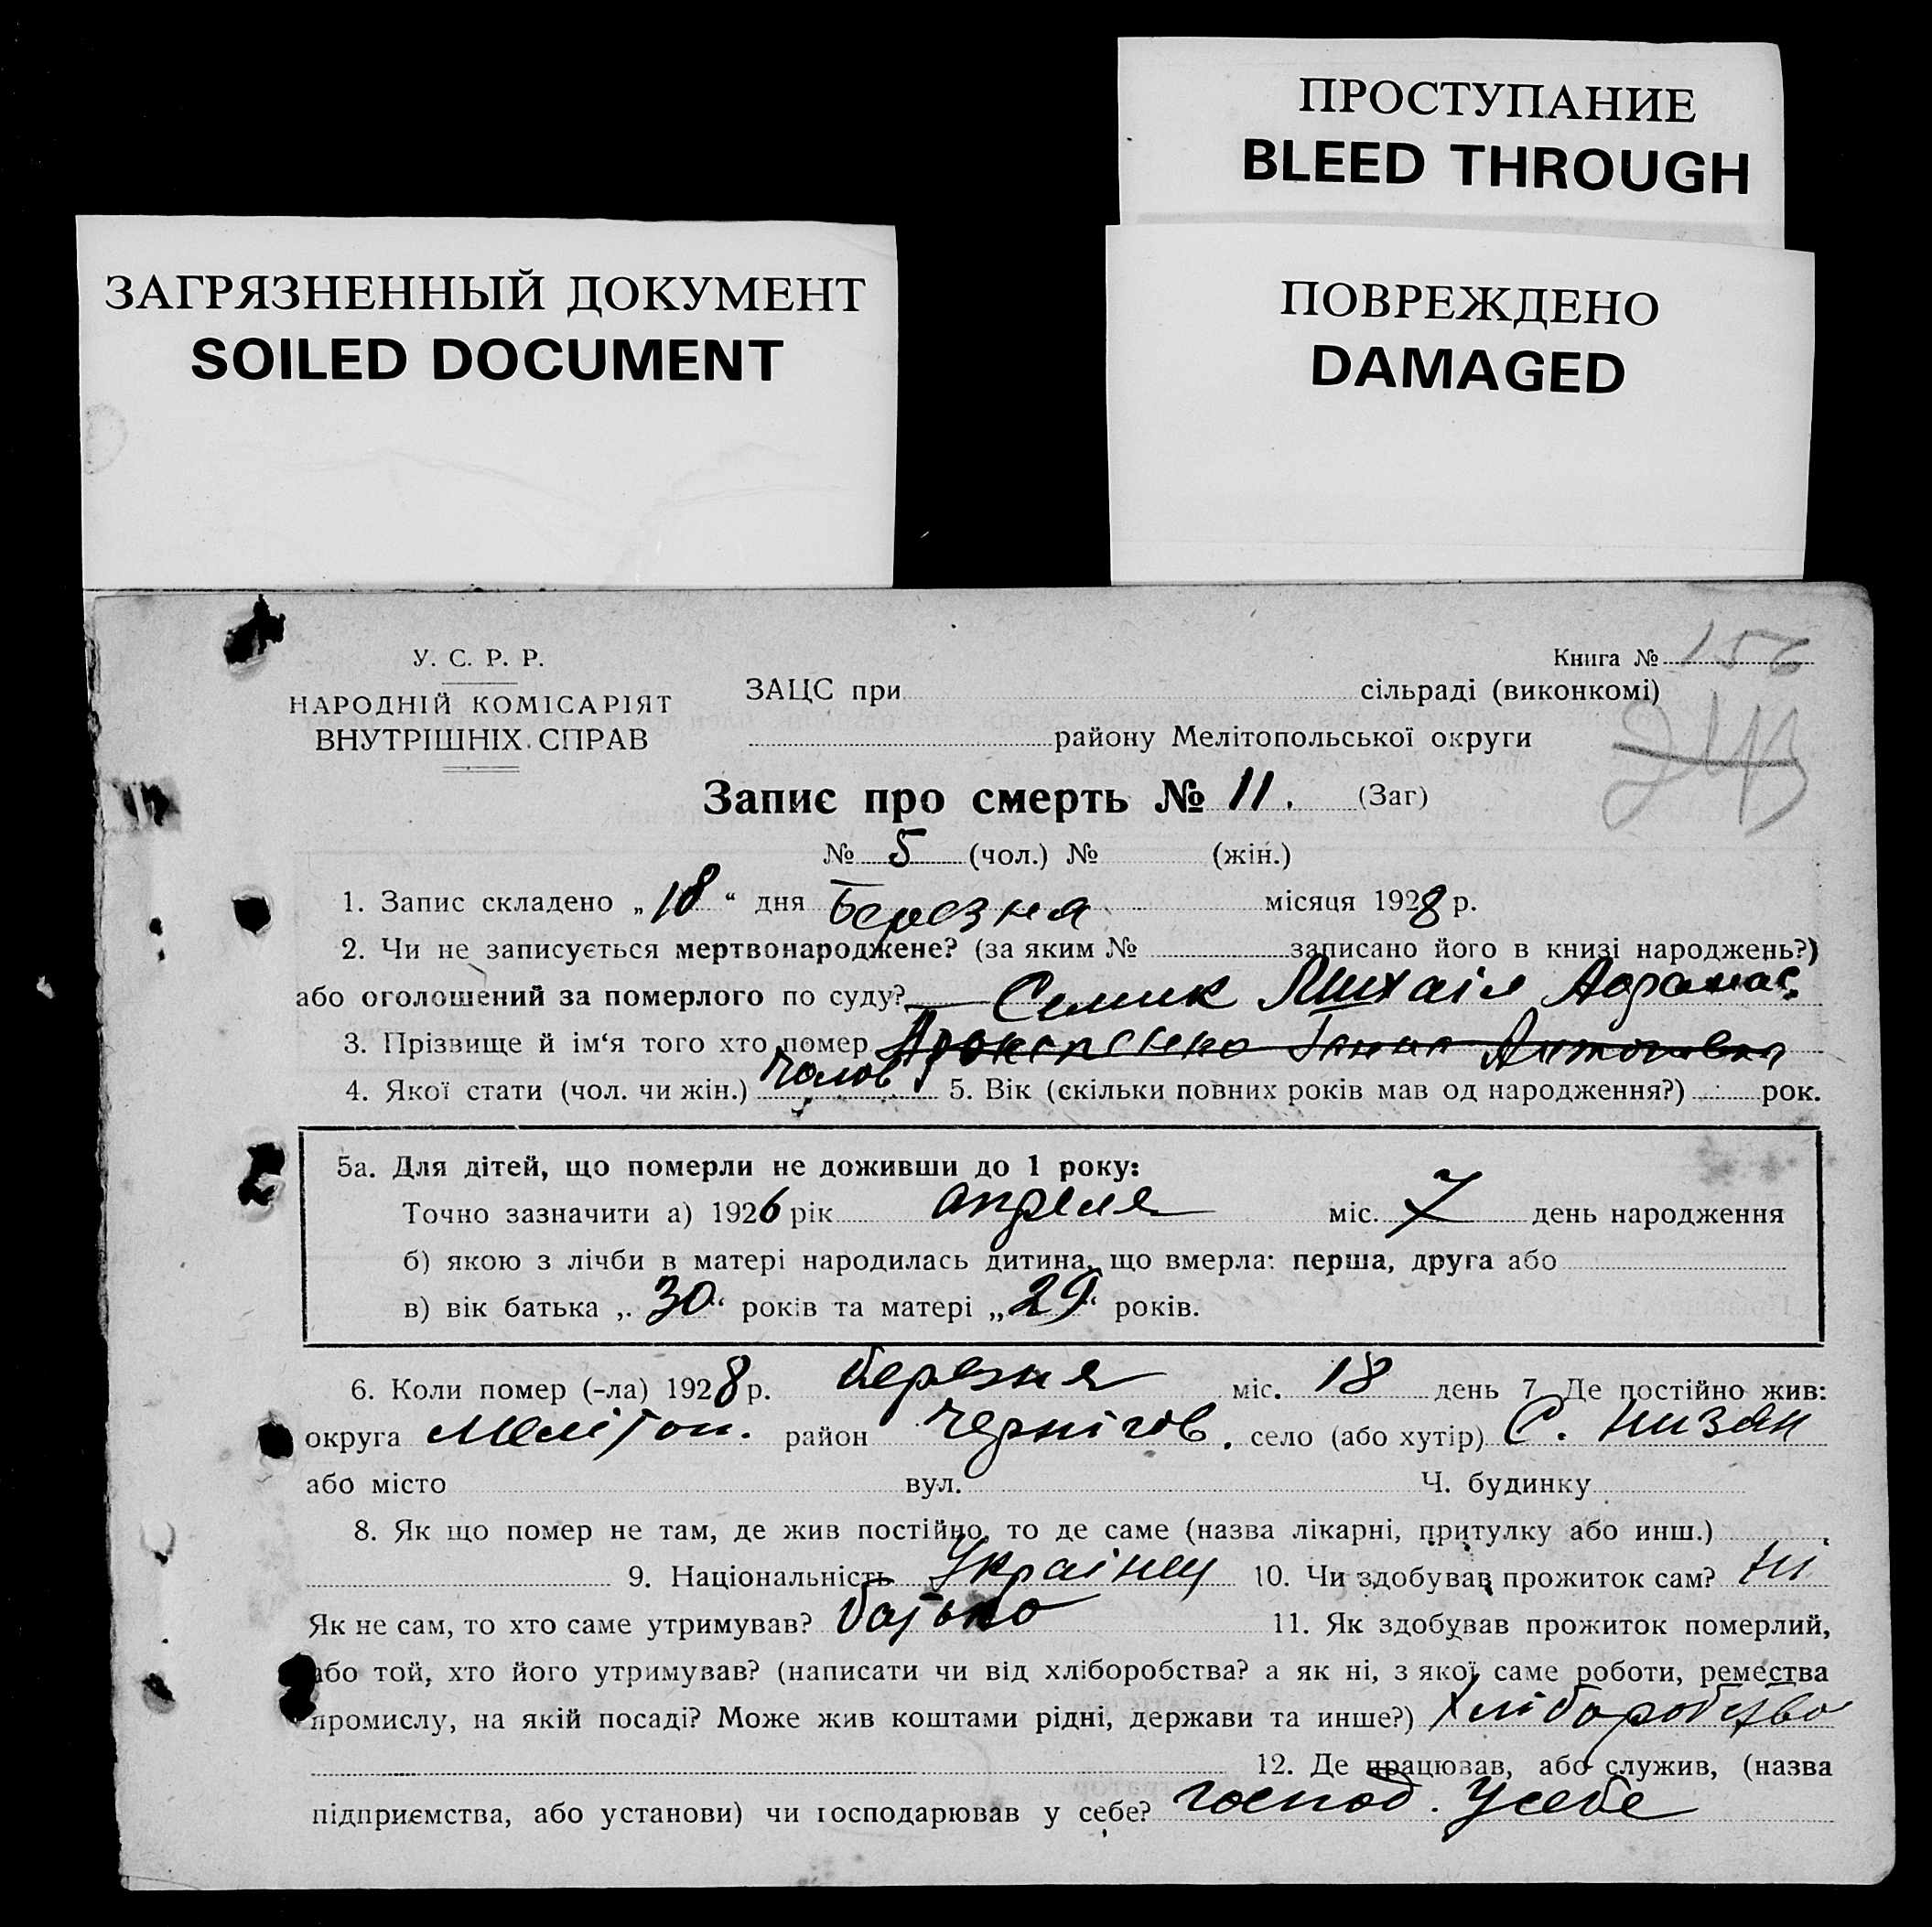 ПРОСТУПАНИЕ
BLEED THROUGH
ЗАГРЯЗНЕННЫЙ ДОКУМЕНТ
SOILED DOCUMENT
ПОВРЕЖДЕНО
DAMAGED
У. С. Р. Р.
НАРОДНІЙ КОМІСАРІЯТ
ВНУТРІШНІХ СПРАВ
Книга № 156
ЗАЦС при сільраді (виконкомі)
району Мелітопольської округи
Запис про смерть № 11. (Заг)
№ 5 (чол.) № (жін.)
1. Запис складено „18“ дня Березня місяця 1928 р.
2. Чи не записується мертвонароджене? (за яким № записано його в книзі народжень?)
або оголошений за померлого по суду? — Семик Михаіл
3. Прізвище й ім‘я того хто помер
4. Якої стати (чол. чи жін.) Чолов 5. Вік (скільки повних років мав од народження?) рок.
5а. Для дітей, що померли не доживши до 1 року:
Точно зазначити а) 1926 рік апреля міс. 7 день народження
б) якою з лічби в матері народилась дитина, що вмерла: перша, друга або
в) вік батька „30“ років та матері „29“ років.
6. Коли помер (-ла) 1928 р. березня міс. 18 день 7. Де постійно жив:
округа Мелітоп. район Чернігов. село (або хутір) С. Низян
або місто вул. Ч. будинку
8. Як що помер не там, де жив постійно, то де саме (назва лікарні, притулку або инш.)
9. Національність Украінец 10. Чи здобував прожиток сам? Ні
Як не сам, то хто саме утримував? батько 11. Як здобував прожиток померлий,
або той, хто його утримував? (написати чи від хліборобства? а як ні, з якої саме роботи, ремества
промислу, на якій посаді? Може жив коштами рідні, держави та инше?) Хліборобство
12. Де працював, або служив, (назва
підприємства, або установи) чи господарював у себе? господ. у себе